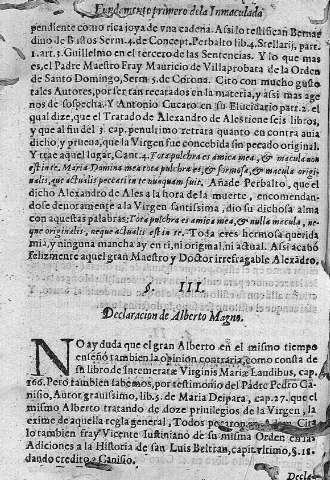 Fundamento primero dela Inmaculada
pendiente como rica joya de vna cadena. Assi lo testifican Bernar
dino de Bustos Serm. 4. de Concept. Perbalto lib. 4. Stellarij, part.
1. art. 3. Guillelmo en el tercero de las Sentencias. Y lo que mas
es, el Padre Maestro Fray Mauricio de Villaprobata de la Orden
de Santo Domingo, Serm. 5. de Corona. Cito con mucho gusto
tales Autores, por ser tan recatados en la materia, y assi mas age
nos de sospecha. Y Antonio Cucaro en su Elucidario part. 2. el
qual dize, que el Tratado de Alexandro de Ales tiene seis libros,
y que al fin del 3. cap. penultimo retrata quanto en contra auia
dicho, y prueua, que la Virgen fue concebida sin pecado original.
Y trae aquel lugar, Cant. 4. Tota pulchra es amica mea, & macula non
est in te. Maria Domina mea tota pulchra es, & formosa, & macula origi-
nalis, que actualis peccati in te nunquam fuit. Añade Perbalto, que el
dicho Alexandro de Ales a la hora de la muerte, encomendan-
dose denotamente a la Virgen santissima, dio su dichosa alma
con aquestas palabras: Tota pulchra es amica mea, & nulla macula, ne-
que originalis, neque actualis est in te. Toda eres hermosa querida
mia, y ninguna mancha ay en ti, ni original, ni actual. Assi acabó
felizmente aquel gran Maestro y Doctor irrefragable Alexãdro.
§. III.
Declaracion de Alberto Magno.
NO ay duda que el gran Alberto en el mismo tiempo
enseñó tambien la opinion contraria, como consta de
su libro de Intemeratæ Virginis Mariæ Laudibus, cap.
160. Pero tambien sabemos, por testimonio del Padre Pedro Ca-
nisio, Autor grauissimo, lib. 5. de Maria Deipara, cap. 27. que el
mismo Alberto tratando de doze priuilegios de la Virgen, la
exime de aquella regla general, Todos pecaron en Adam. Cita
lo tambien fray Vicente Iustiniano de su misma Orden en las
Adiciones a la Historia de san Luis Beltran, capit. vltimo, §. 18.
dando credito a Canisio.
Decla-